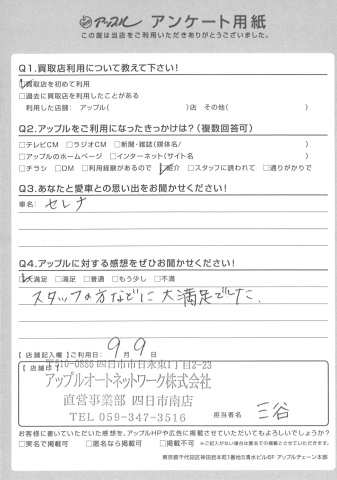 アップル アンケート用紙
この度は当店をご利用いただきありがとうございました。
Q1.買取店利用について教えて下さい!
☑買取店を初めて利用
□過去に買取店を利用したことがある
利用した店舗: アップル( )店 その他( )
Q2.アップルをご利用になったきっかけは?(複数回答可)
□テレビCM □ラジオCM □新聞・雑誌(媒体名/ )
□アップルのホームページ □インターネット(サイト名 )
□チラシ □DM □利用経験があるので ☑紹介 □スタッフに誘われて □通りがかりで
Q3.あなたと愛車との思い出をお聞かせください!
車名: セレナ
Q4.アップルに対する感想をぜひお聞かせください!
☑大満足 □満足 □普通 □もう少し □不満
スタッフの方などに大満足でした.
【店舗記入欄】ご利用日: 9月 9日
【店舗印】
〒510-0886 四日市市日永東1丁目2-23
アップルオートネットワーク株式会社
直営事業部 四日市南店
TEL 059-347-3516
担当者名 三谷
お客様に書いていただいた感想を、アップルHPや広告に掲載させていただいてもよろしいでしょうか?
□実名で掲載可 □匿名なら掲載可 □掲載不可 ※ご記入がない場合は匿名での掲載とさせていただきます。
東京都千代田区神田岩本町1番地5清水ビル6F アップルチェーン本部